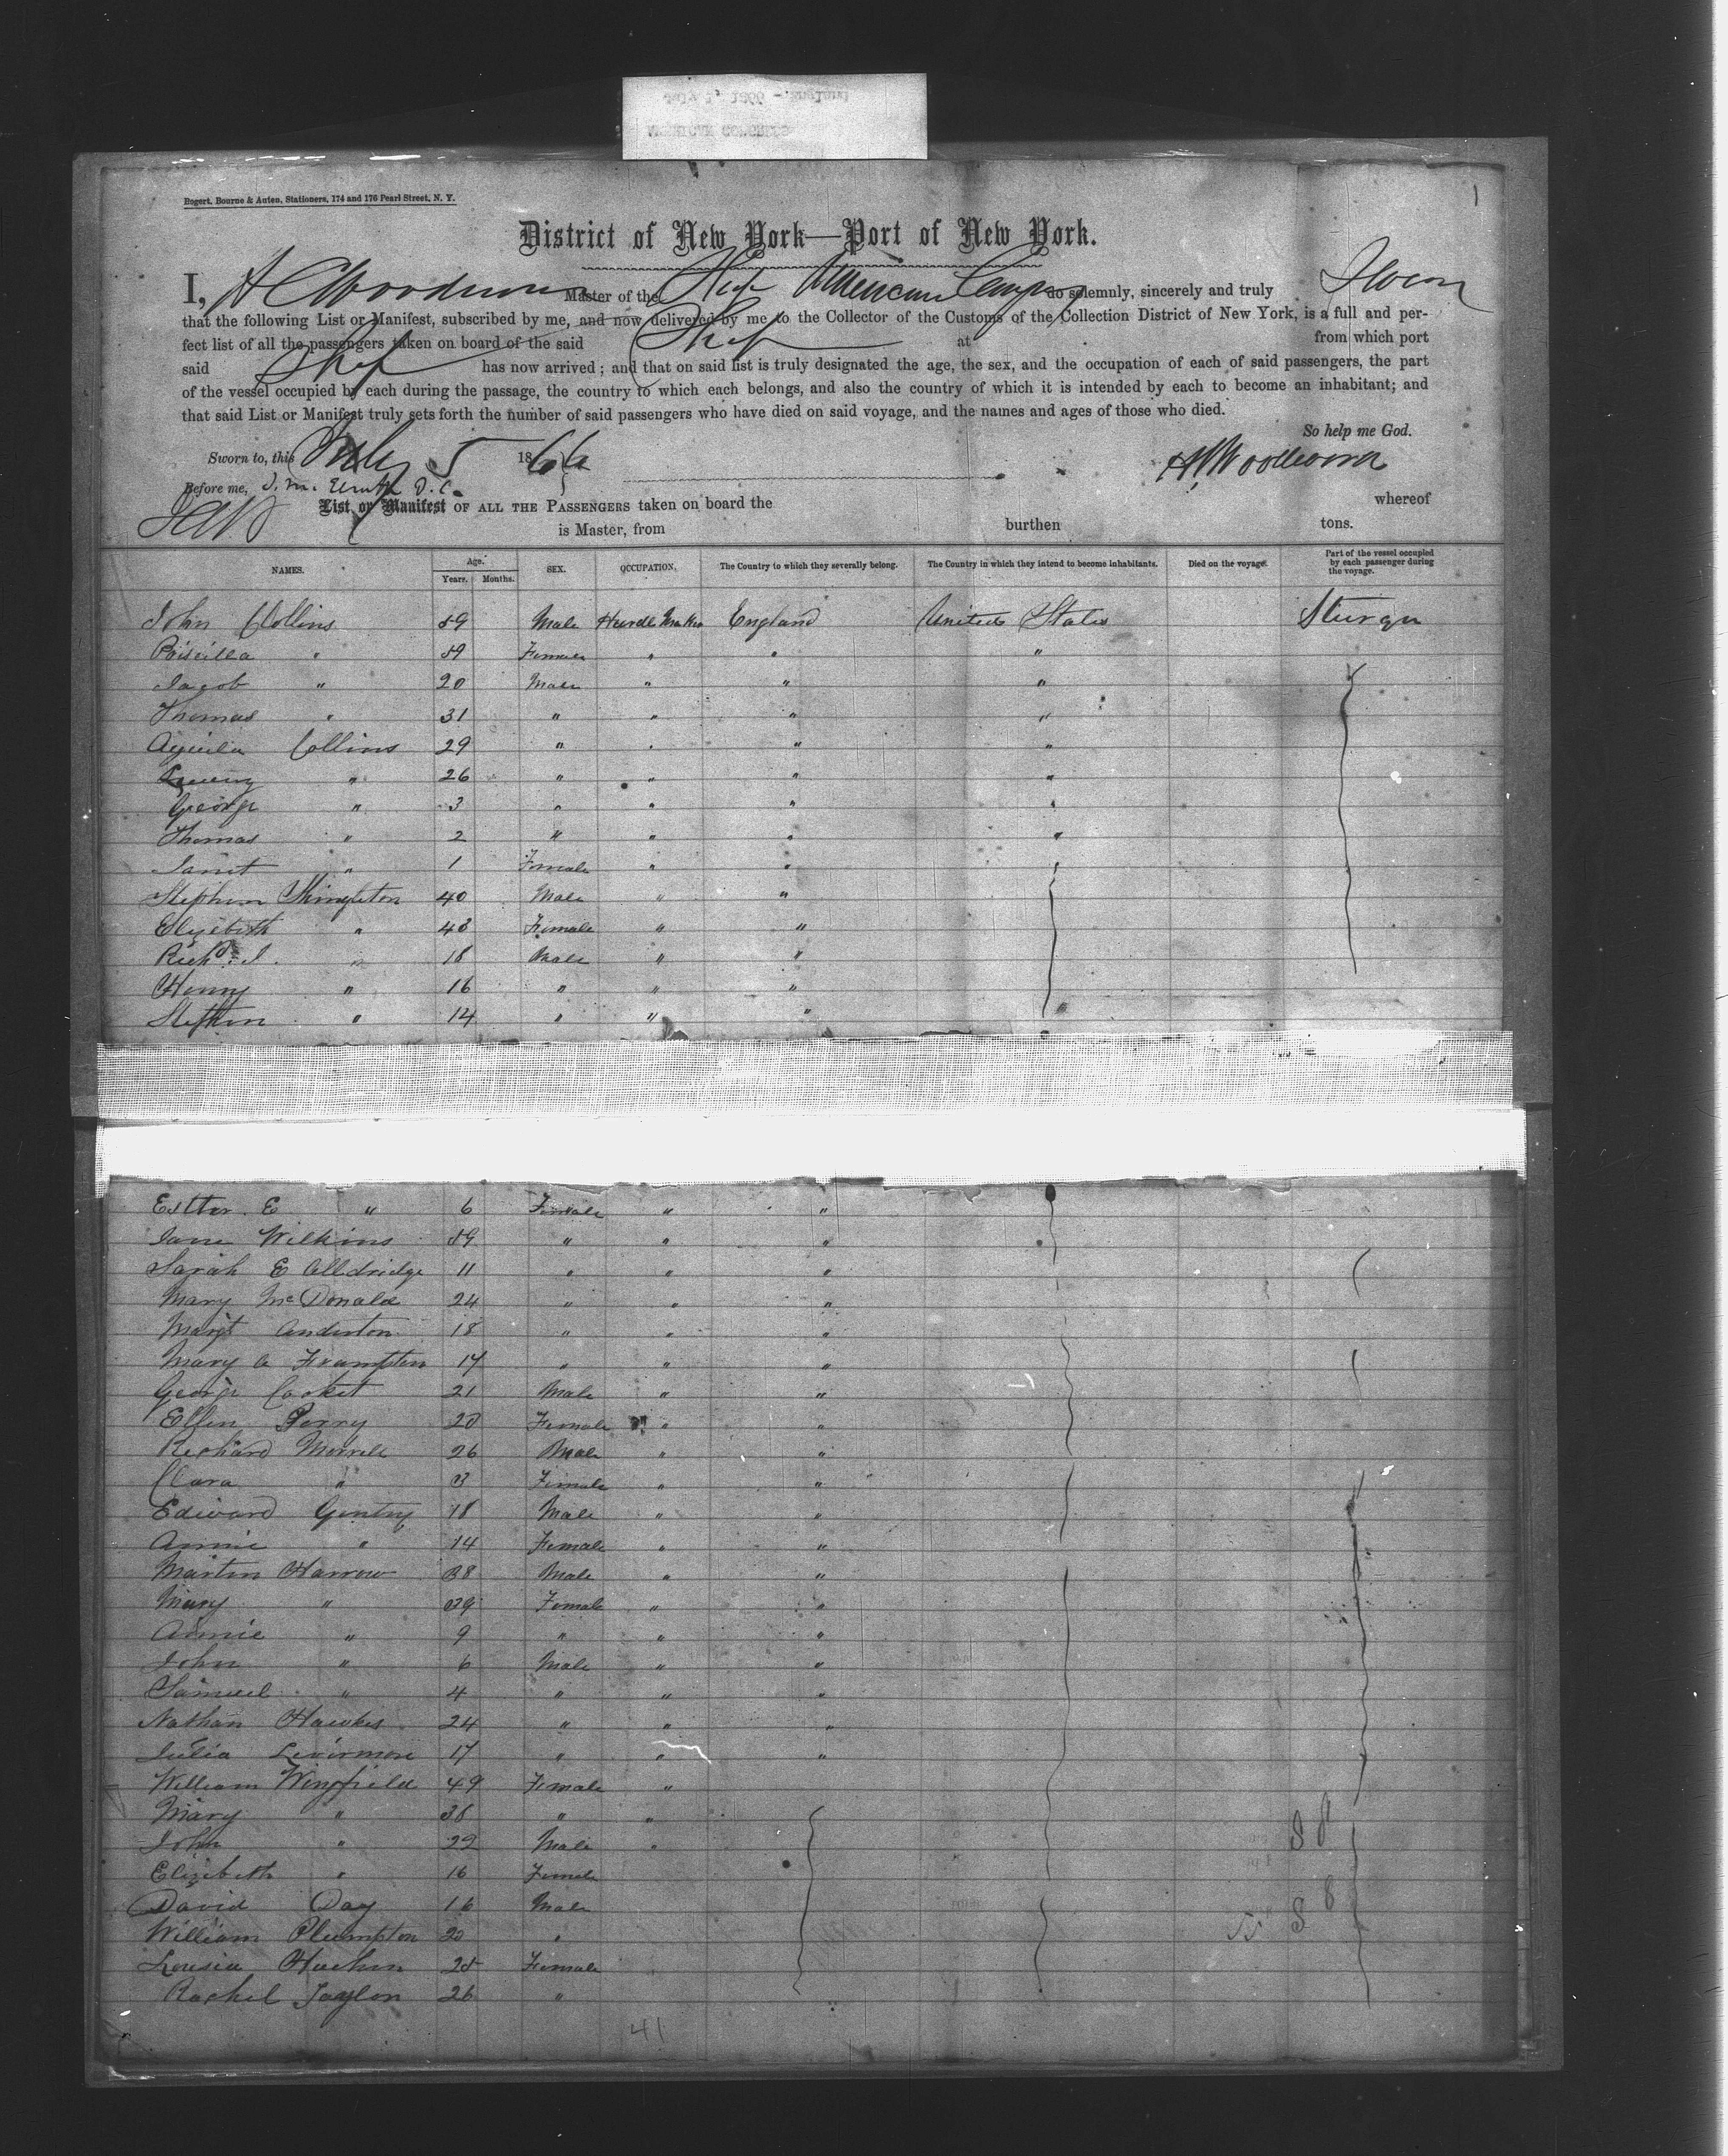 Bogert, Bourne & Auten, Stationers, 174 and 176 Pearl Street, N. Y.
1
District of New York—Port of New York.
I, Master of the Ship American Congress do solemnly, sincerely and truly Swear
that the following List or Manifest, subscribed by me, and now delivered by me to the Collector of the Customs of the Collection District of New York, is a full and per-
fect list of all the passengers taken on board of the said Ship at from which port
said Ship has now arrived; and that on said list is truly designated the age, the sex, and the occupation of each of said passengers, the part
of the vessel occupied by each during the passage, the country to which each belongs, and also the country of which it is intended by each to become an inhabitant; and
that said List or Manifest truly sets forth the number of said passengers who have died on said voyage, and the names and ages of those who died.
So help me God.
Sworn to, this July 5 1866
Before me, D. C.
List or Manifest OF ALL THE PASSENGERS taken on board the whereof
is Master, from burthen tons.
NAMES. Age. Years. Months. SEX. OCCUPATION. The Country to which they severally belong. The Country in which they intend to become inhabitants. Died on the voyage. Part of the vessel occupied by each passenger during the voyage.
John Collins 59 Male Hurdle Maker England United States
Priscilla " 59 Female " " "
Jacob " 20 Male " " "
Thomas " 31 " " " "
Aquila Collins 29 " " " "
" 26 " " " "
George " 3 " " " "
Thomas " 2 " " " "
Janet " 1 Female " " "
Stephen 40 Male " "
Elizabeth " 43 Female " "
Richd. J. " 18 Male " "
Henry " 16 " " "
Stephen " 14 " " " "
Esther E " 6 Female " "
Jane Wilkins 59 " " "
Sarah E Alldridge 11 " " "
Mary McDonald 24 " " "
Margt Anderton 18 " " "
Mary A Frampton 17 " " "
George Cocket 21 Male " "
Ellen Perry 20 Female " "
Richard Morrell 26 Male " "
Clara " 3 Female " "
Edward Gentry 18 Male " "
Annie " 14 Female " "
Martin Harrow 38 Male " "
Mary " 39 Female " "
Annie " 9 " " "
John " 6 Male " "
Samuel " 4 " " "
Nathan Hawkes 24 " " "
Julia Livermore 17 " " "
William Wingfield 49 Female "
Mary " 38 " "
John " 22 Male "
Elizabeth " 16 Female
David Day 16 Male
William Plumpton 20 "
Lousia 25 Female
Rachel Taylor 26 "
41